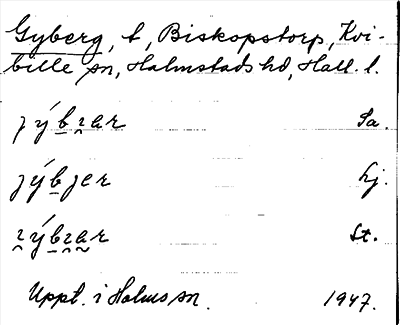 Gyberg, t, Biskopstorp, Kvi-
bille sn, Halmstads hd, Hall. l.
ȷýbɿar Sa.
ȷýbȷer Lj.
ɿýbɿar St.
Uppt. i Holms sn. 1947.